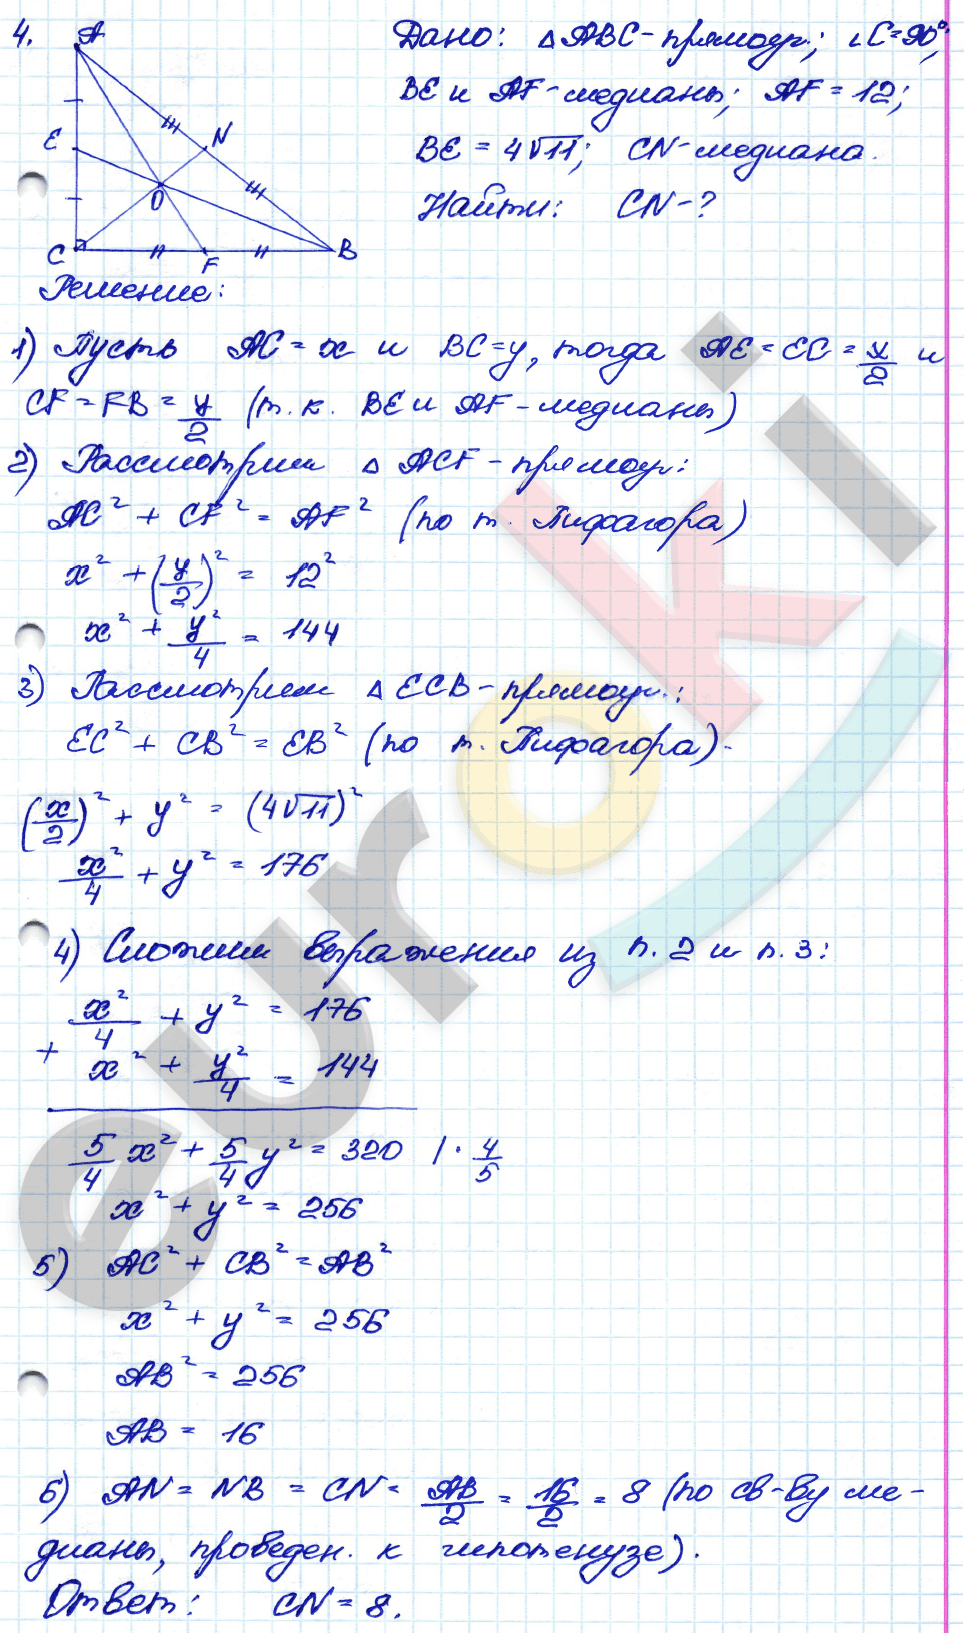 4.
A
E
N
O
C
F
B
Дано: △ABC-прямоуг.; ∠C=90°;
BE и AF-медианы; AF = 12;
BE = 4√11; CN-медиана.
Найти: CN-?
Решение:
1) Пусть AC = x и BC=y, тогда AE=EC=x/2 и
CF=FB=y/2 (т.к. BE и AF-медианы)
2) Рассмотрим △ACF-прямоуг:
AC² + CF² = AF² (по т. Пифагора)
x² + (y/2)² = 12²
x² + y²/4 = 144
3) Рассмотрим △ECB-прямоуг.:
EC² + CB² = EB² (по т. Пифагора).
(x/2)² + y² = (4√11)²
x²/4 + y² = 176
4) Сложим выражения из п.2 и п.3:
x²/4 + y² = 176
+
x² + y²/4 = 144
5/4 x² + 5/4 y² = 320 | · 4/5
x² + y² = 256
5) AC² + CB² = AB²
x² + y² = 256
AB² = 256
AB = 16
6) AN = NB = CN = AB/2 = 16/2 = 8 (по св-ву ме-
дианы, проведен. к гипотенузе).
Ответ: CN = 8.
euroki